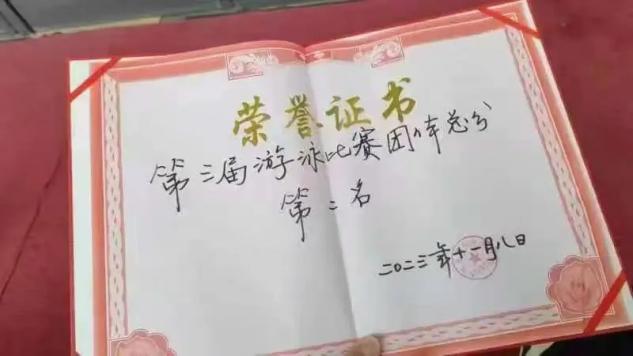 荣誉证书
第三届游泳比赛团体总分
第二名
二〇二三年十一月八日